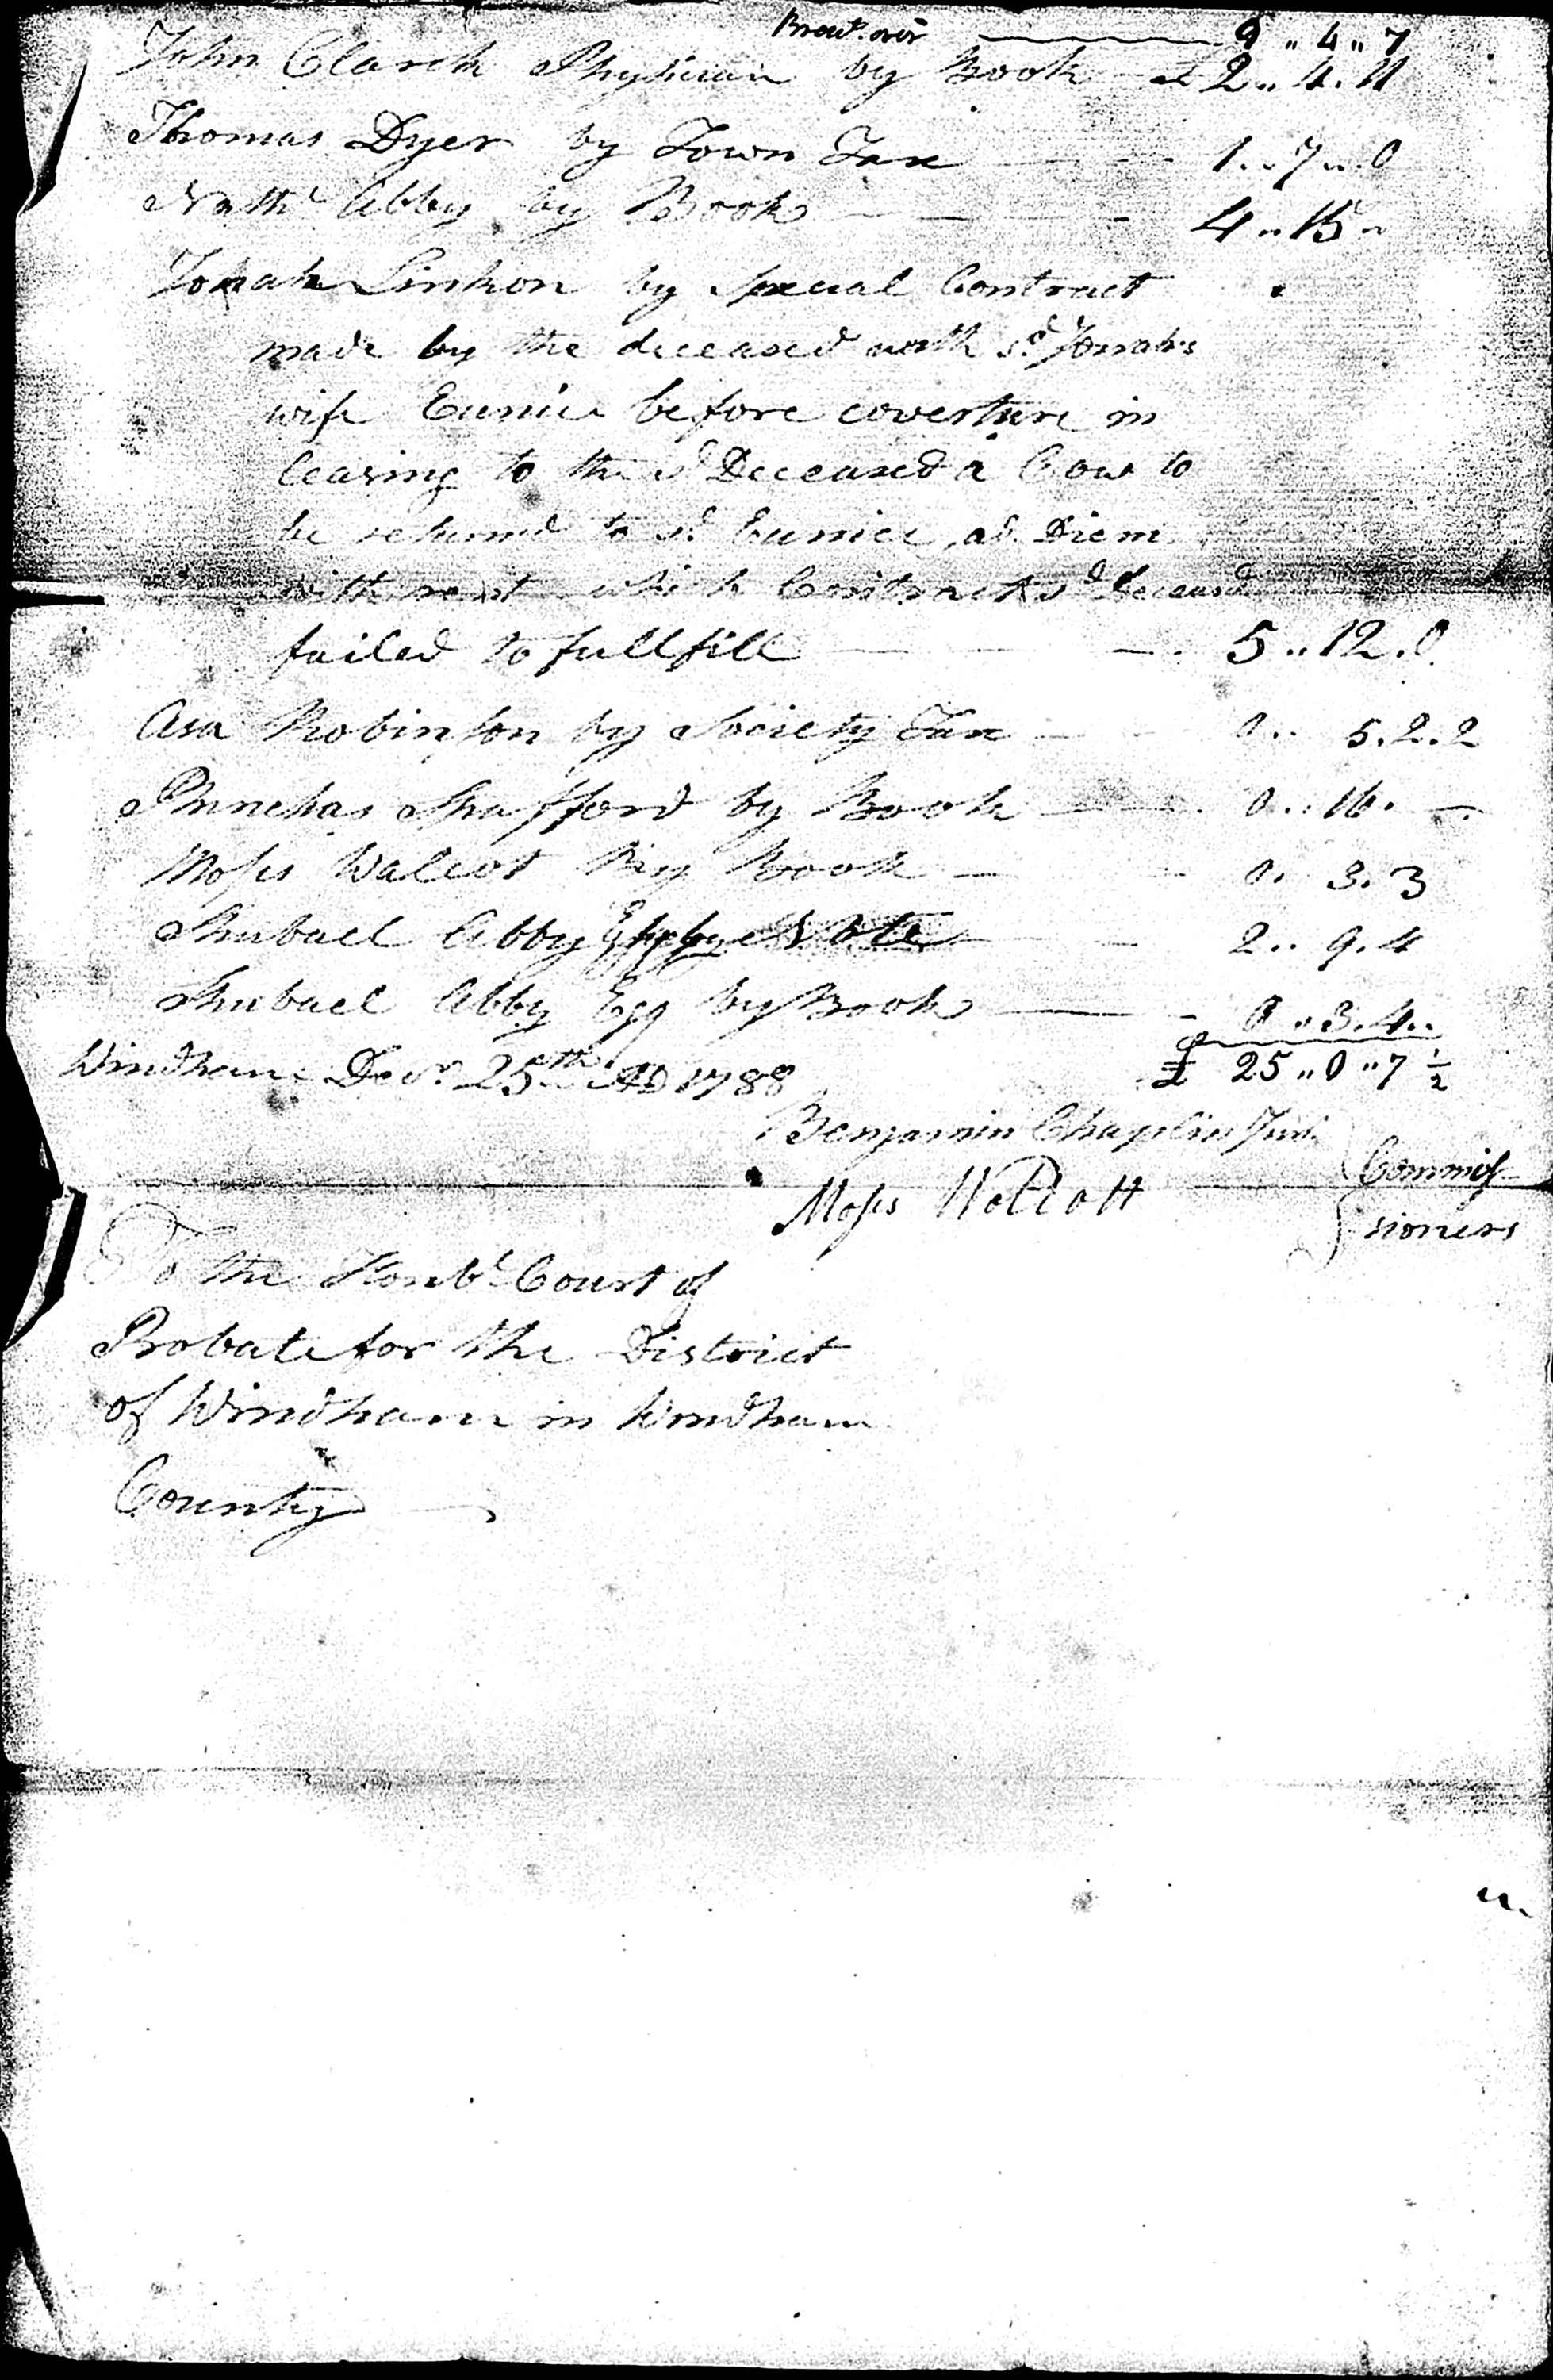 Brout. over 9 .. 4 .. 7
John Clark Physician by Book £ 2 .. 4 . 11
Thomas Dyer by Town Tax 1 .. 7 .. 0
Nathl Abby by Book 4 .. 15 ..
Jonah Linkon by Special Contract
made by the deceased with sd Jonah's
wife Eunice before coverture in
leasing to the sd Deceased a Cow to
be returnd to sd Eunice ad Diem
with rent which Contract sd Deceasd
failed to fullfill 5 .. 12 . 0
Asa Robinson by Society Tax 0 .. 5 . 2 . 2
Phinehas Spafford by Book 0 .. 16 .
Moses Walcot By Book 0 . 3 . 3
Shubael Abby Esqr by Note 2 .. 9 . 4
Shubael Abby Esq by Book 0 .. 3 . 4 ..
Windham Decr 25th AD 1788 £ 25 .. 0 .. 7 1/2
Benjamin Chaplin Junr
Moses Wolcott } Commis-
sioners
To the Honbl Court of
Probate for the District
of Windham in Windham
County